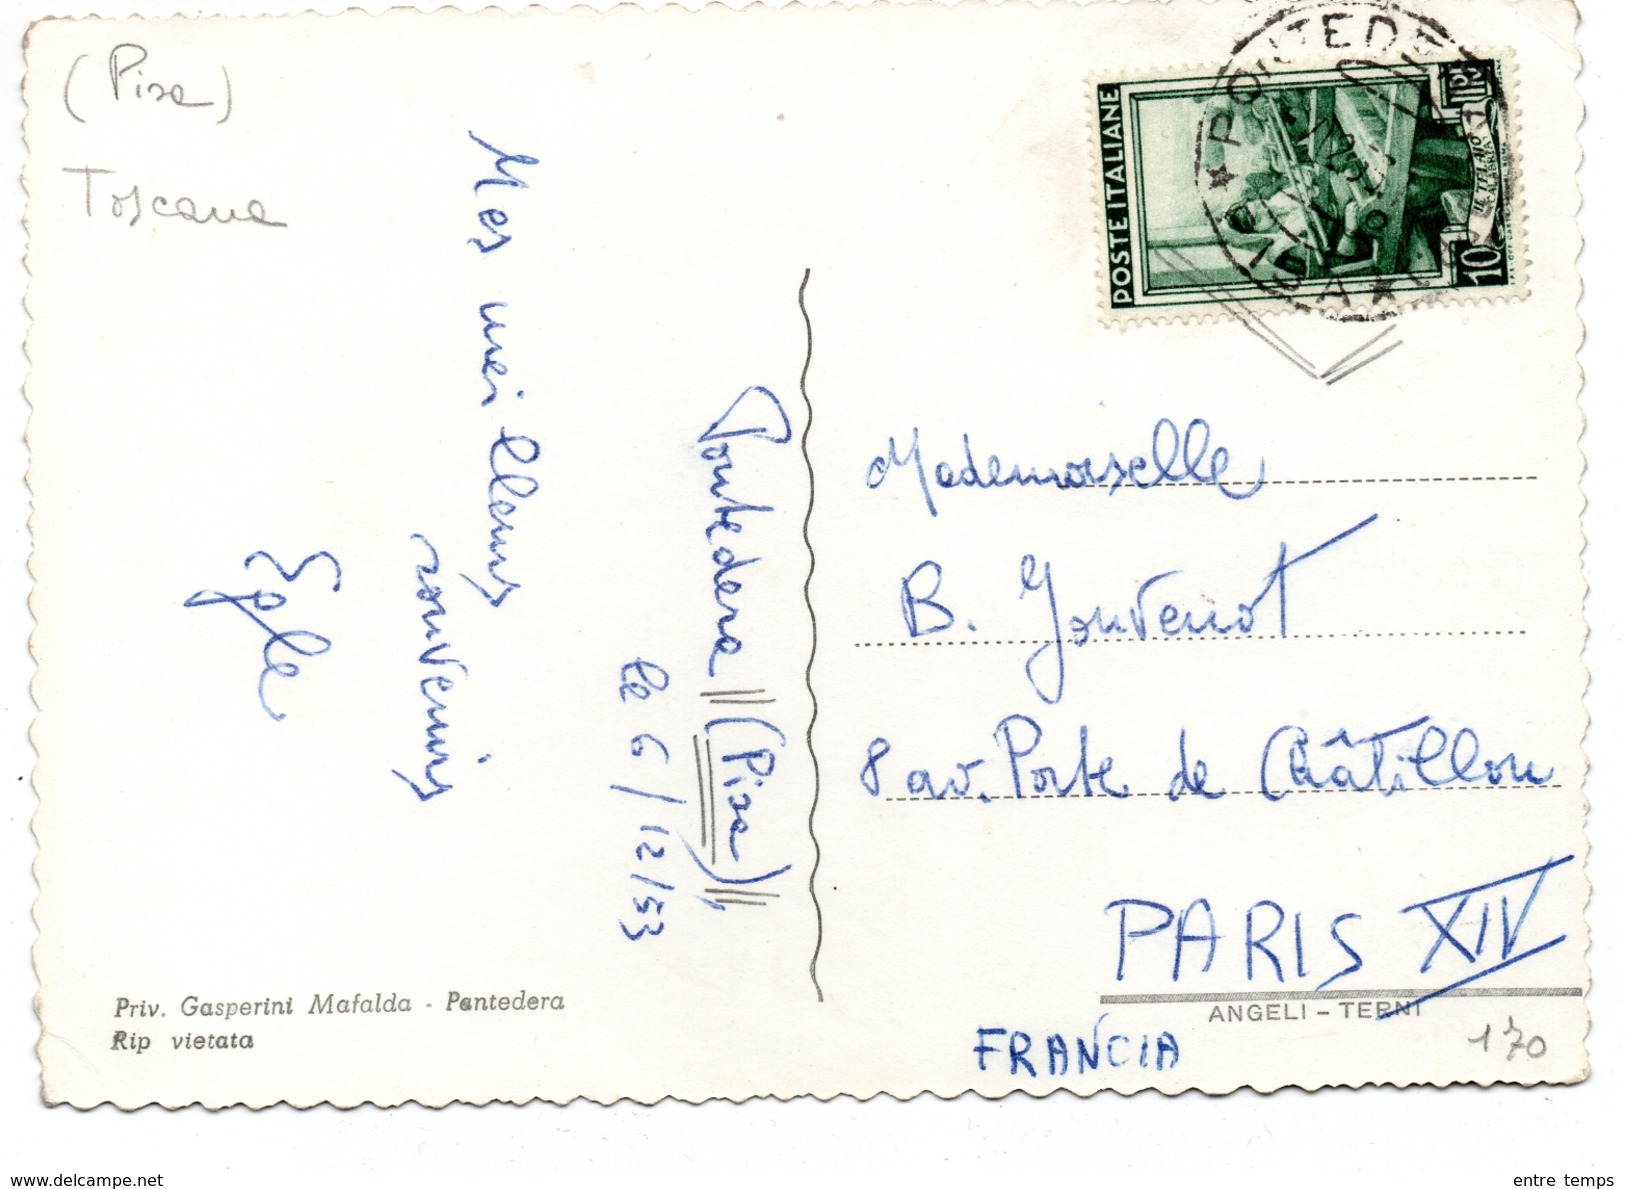 (Pisa)
Toscana
Mes meilleurs
souvenirs
Egle
Pontedera (Pisa),
le 6/12/53
Priv. Gasperini Mafalda - Pontedera
Rip vietata
POSTE ITALIANE
IL TELAIO
CALABRIA
10
PONTEDERA
PISA
Mademoiselle
B. Jouvenot
8 av. Porte de Châtillon
PARIS XIV
ANGELI - TERNI
FRANCIA
170
www.delcampe.net
entre temps